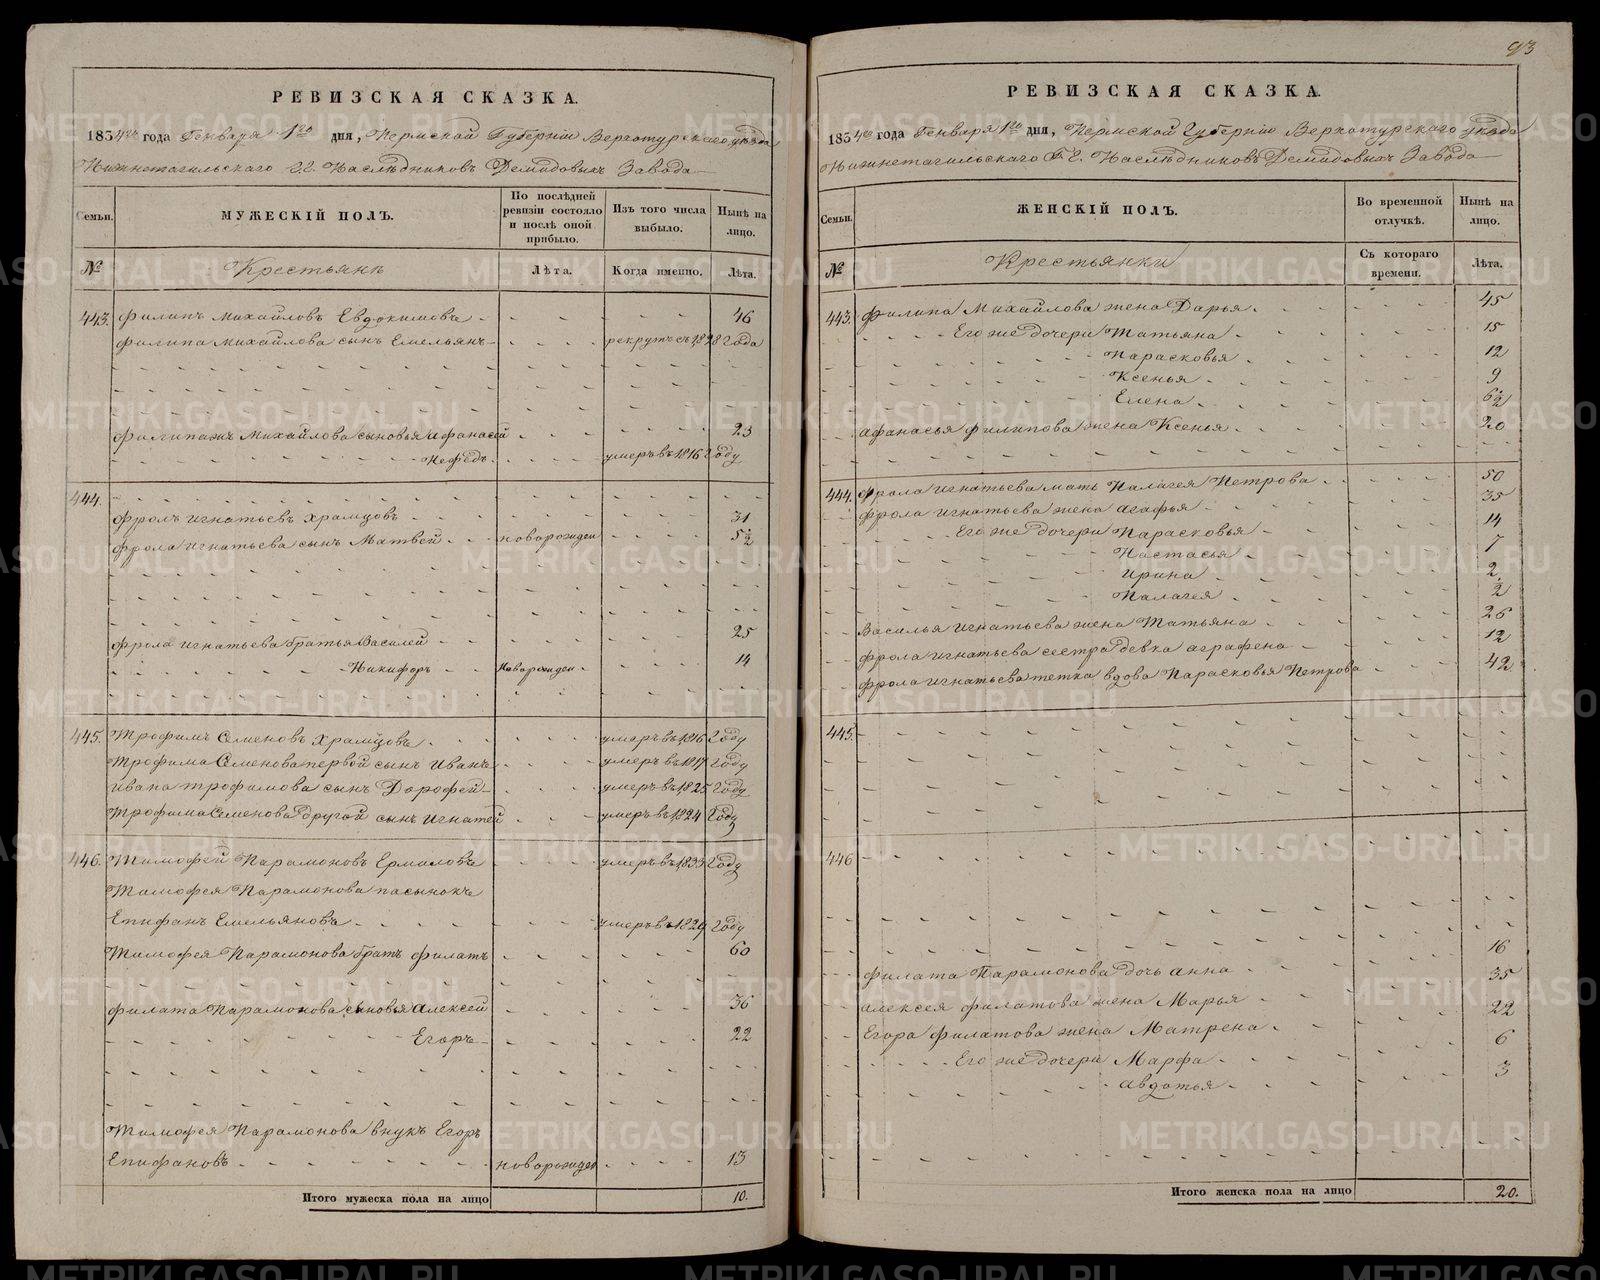 РЕВИЗСКАЯ СКАЗКА.
1834го года Генваря 1го дня, Пермской Губерніи Верхотурскаго уѣзда
Нижнетагильскаго Г.Г. Наслѣдниковъ Демидовыхъ Завода
Семьи.
МУЖЕСКІЙ ПОЛЪ.
По послѣдней ревизіи состояло и послѣ оной прибыло.
Изъ того числа выбыло.
Нынѣ на лицо.
№
Крестьянъ
Лѣта.
Когда именно.
Лѣта.
443. Филипъ Михайловъ Евдокимовъ 46
Филипа Михайлова сынъ Емельянъ рекрутъ съ 1828 Года
Филипажъ Михайлова сыновья Афанасей 23
Нефедъ умеръ въ 1816 Году
444.
Фролъ Игнатьевъ Храмцовъ 31
Фрола Игнатьева сынъ Матвей новорожден 5 1/2
Фрола Игнатьева братья Василей 25
Никифоръ новорожден 14
445. Трофимъ Семеновъ Храмцовъ умеръ въ 1816 Году
Трофима Семенова первой сынъ Иванъ умеръ въ 1817 Году
Ивана Трофимова сынъ Дорофей умеръ въ 1825 Году
Трофима Семенова другой сынъ Игнатей умеръ въ 1824 Году
446. Тимофей Парамоновъ Ермаловъ умеръ въ 1833 Году
Тимофея Парамонова пасынокъ
Епифанъ Емельяновъ умеръ въ 1829 Году
Тимофея Парамонова братъ Филатъ 60
Филата Парамонова сыновья Алексей 36
Егоръ 22
Тимофея Парамонова внукъ Егоръ
Епифановъ новорожден 13
Итого мужеска пола на лицо 10.
93
РЕВИЗСКАЯ СКАЗКА.
1834го года Генваря 1го дня, Пермской Губерніи Верхотурскаго уѣзда
Нижнетагильскаго Г.Г. Наслѣдниковъ Демидовыхъ Завода
Семьи.
ЖЕНСКІЙ ПОЛЪ.
Во временной отлучкѣ.
Нынѣ на лицо.
№
Крестьянки
Съ котораго времени.
Лѣта.
443. Филипа Михайлова жена Дарья 45
Его же дочери Татьяна 15
Парасковья 12
Ксенья 9
Елена 6 1/2
Афанасья Филипова жена Ксенья 20
444. Фрола Игнатьева мать Палагея Петрова 50
Фрола Игнатьева жена Агафья 35
Его же дочери Парасковья 14
Настасья 7
Ирина 2
Палагея 1/2
Василья Игнатьева жена Татьяна 26
Фрола Игнатьева сестра девка Аграфена 12
Фрола Игнатьева тетка вдова Парасковья Петрова 42
445.
446
Филата Парамонова дочь Анна 16
Алексея Филатова жена Марья 35
Егора Филатова жена Матрена 22
Его же дочери Марфа 6
Авдотья 3
Итого женска пола на лицо 20.
METRIKI.GASO-URAL.RU